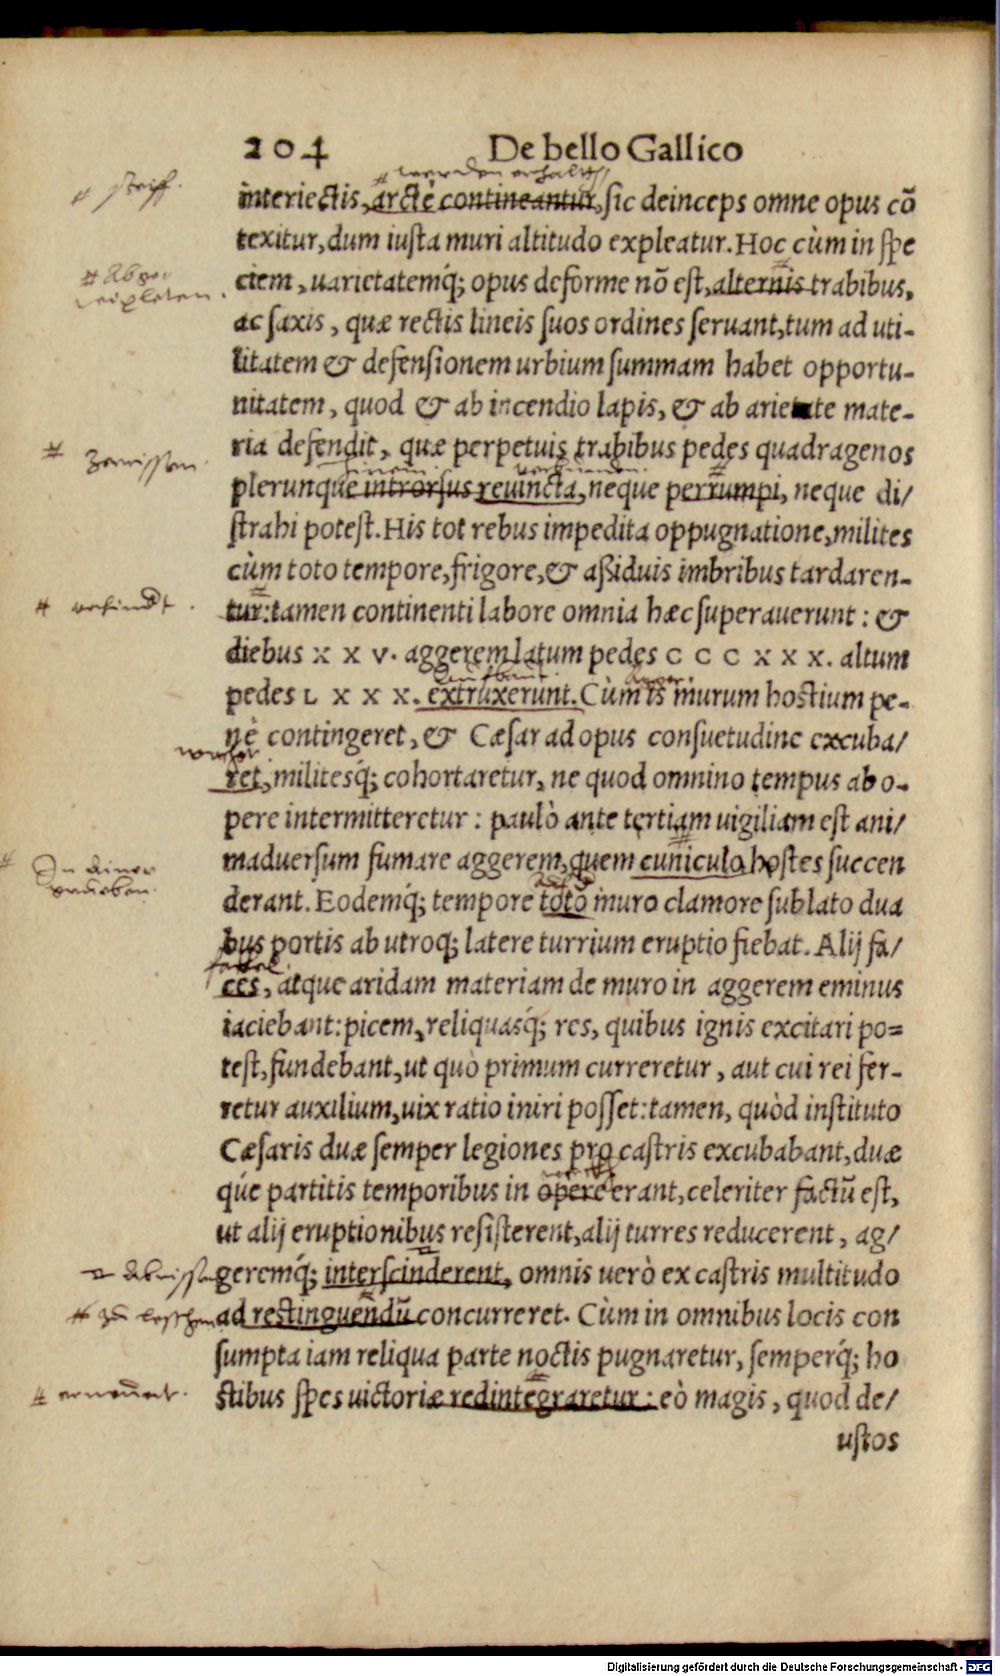 204 De bello Gallico
interiectis, arctè contineantur, sic deinceps omne opus cõ
texitur, dum iusta muri altitudo expleatur. Hoc cùm in spe
ciem, uarietatemq́; opus deforme nõ est, alternis trabibus,
ac saxis, quæ rectis lineis suos ordines seruant, tum ad uti-
litatem & defensionem urbium summam habet opportu-
nitatem, quod & ab incendio lapis, & ab ariete mate-
ria defendit, quæ perpetuis trabibus pedes quadragenos
plerunque introrsus reuincta, neque perrumpi, neque di/
strahi potest. His tot rebus impedita oppugnatione, milites
cùm toto tempore, frigore, & aßiduis imbribus tardaren-
tur: tamen continenti labore omnia hæc superauerunt: &
diebus X X V. aggerem latum pedes C C C X X X. altum
pedes L X X X. extruxerunt. Cùm is murum hostium pe-
nè contingeret, & Cæsar ad opus consuetudine excuba/
ret, militesq́; cohortaretur, ne quod omnino tempus ab o-
pere intermitteretur: paulò ante tertiam uigiliam est ani/
maduersum fumare aggerem, quem cuniculo hostes succen
derant. Eodemq́; tempore toto muro clamore sublato dua
bus portis ab utroq; latere turrium eruptio fiebat. Alij fa/
ces, atque aridam materiam de muro in aggerem eminus
iaciebant: picem, reliquasq́; res, quibus ignis excitari po=
test, fundebant, ut quò primum curreretur, aut cui rei fer-
retur auxilium, uix ratio iniri posset: tamen, quòd instituto
Cæsaris duæ semper legiones pro castris excubabant, duæ
que partitis temporibus in opere erant, celeriter factũ est,
ut alij eruptionibus resisterent, alij turres reducerent, ag/
geremq́; interscinderent, omnis uerò ex castris multitudo
ad restinguendũ concurreret. Cùm in omnibus locis con
sumpta iam reliqua parte noctis pugnaretur, semperq́; ho
stibus spes uictoriæ redintegraretur: eò magis, quod de/
ustos
# steiff.
# zerrissen.
Digitalisierung gefördert durch die Deutsche Forschungsgemeinschaft - DFG